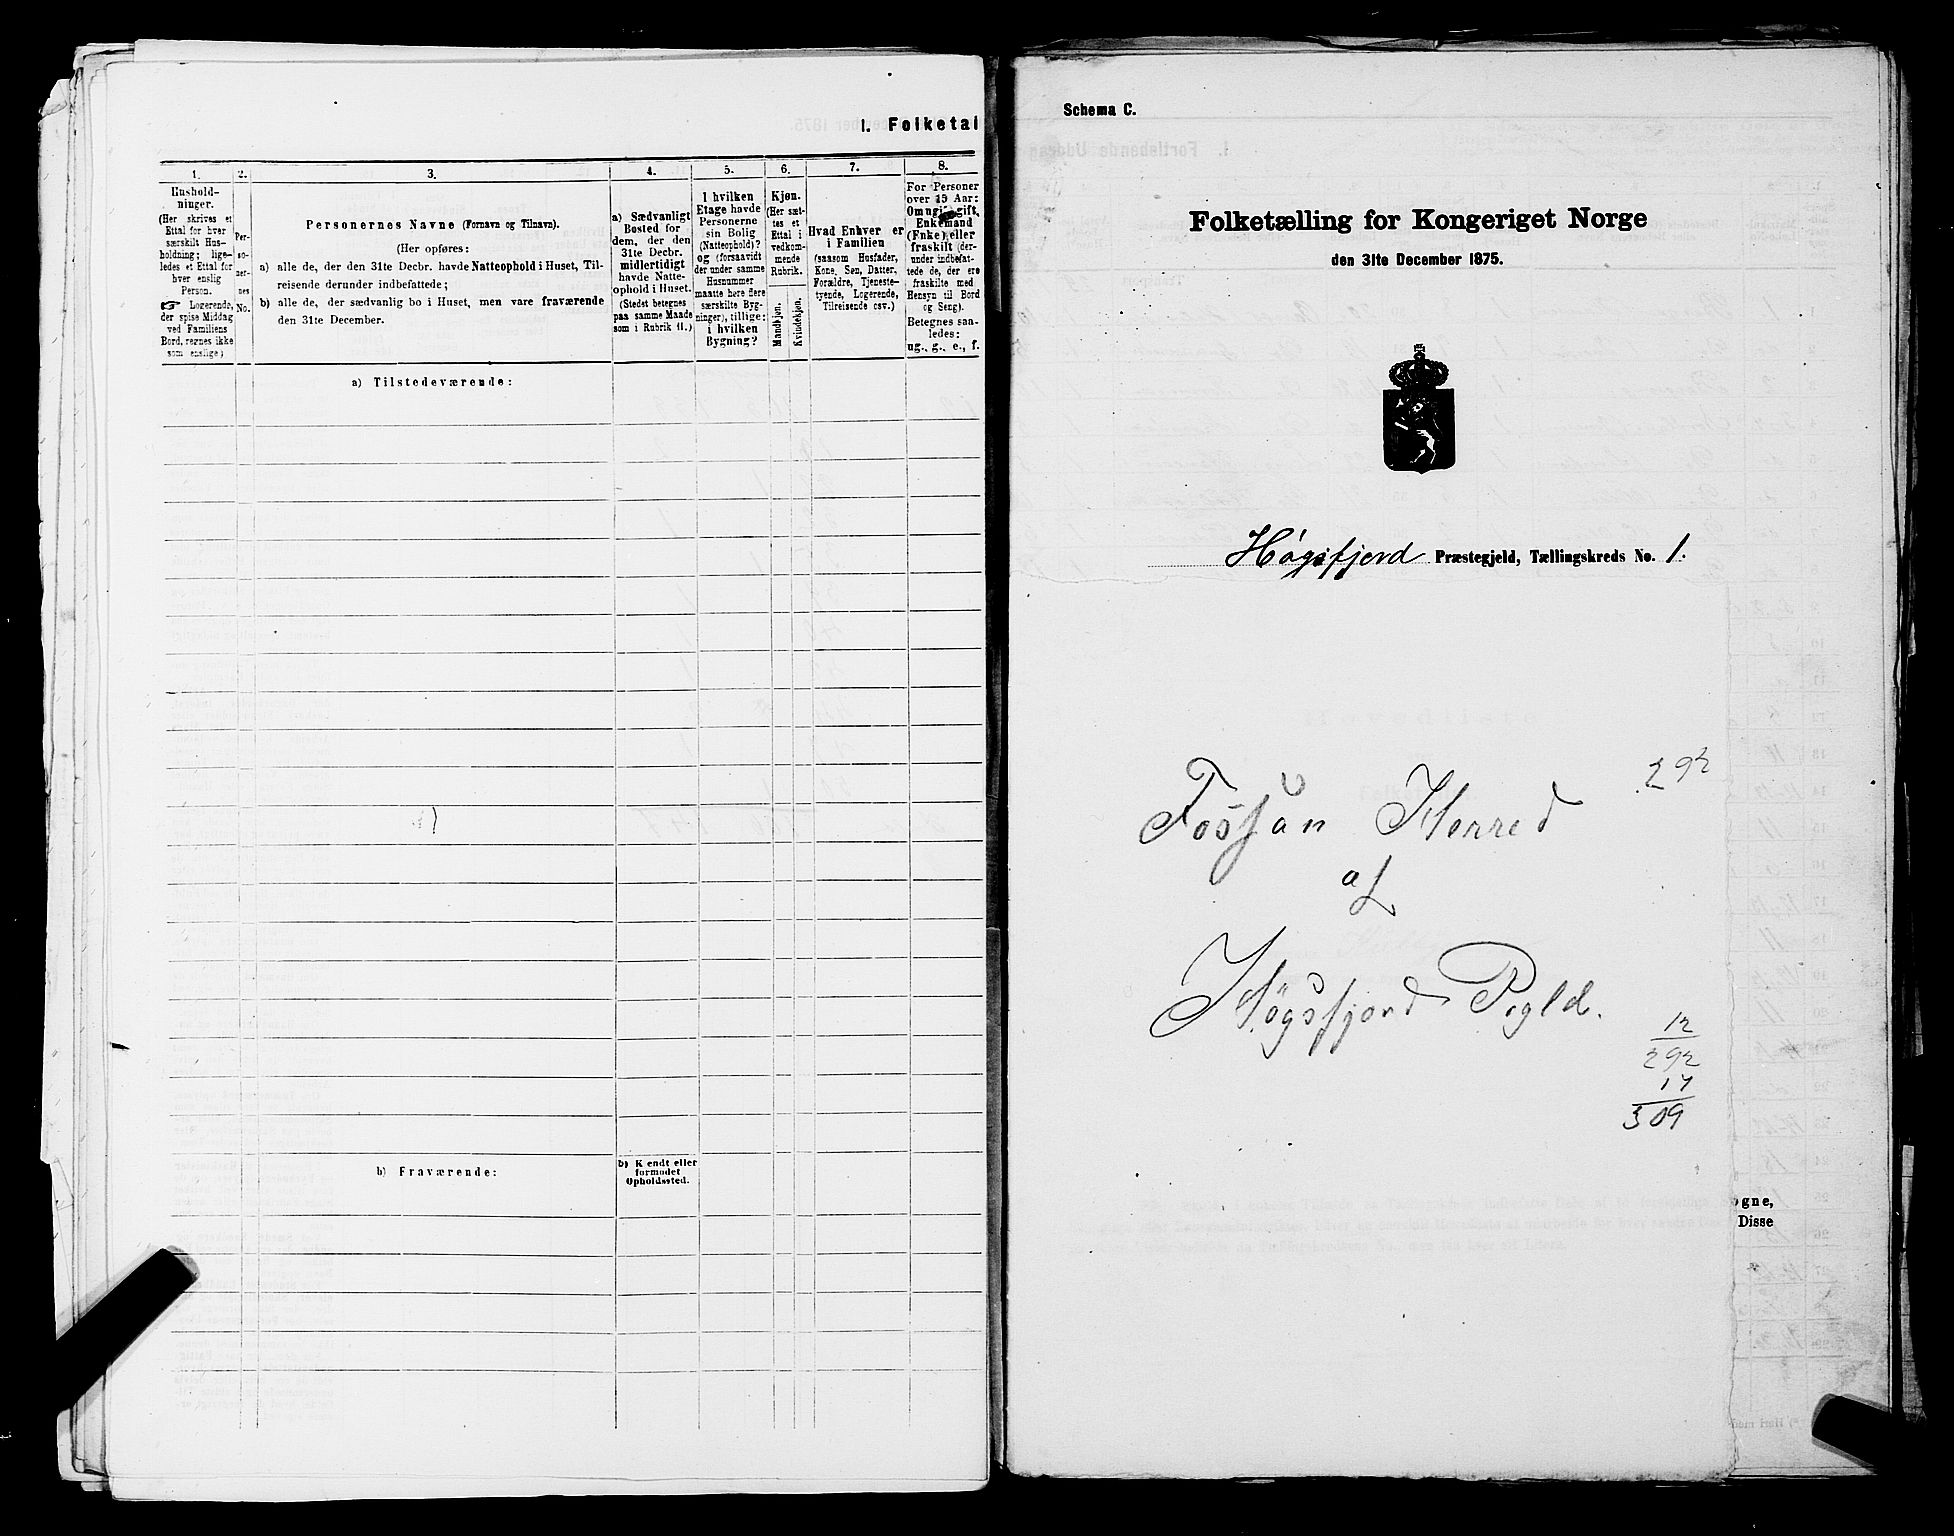 1. Folketal
1.
Hushold-
ninger.
(Her skrives et
Ettal for hver
særskilt Hus-
holdning; lige-
ledes et Ettal for
hver enslig
Person.
☞ Logerende,
der spise Middag
ved Familiens
Bord, regnes ikke
som enslige)
2.
Per-
so-
ner-
nes
No.
3.
Personernes Navne (Fornavn og Tilnavn).
(Her opføres:
a) alle de, der den 31te Decbr. havde Natteophold i Huset, Til-
reisende derunder indbefattede;
b) alle de, der sædvanlig bo i Huset, men vare fraværende
den 31te December.
4.
a) Sædvanligt
Bosted for
dem, der den
31te Decbr.
midlertidigt
havde Natte-
ophold i Huset.
(Stedst betegnes
paa samme Maade
som i Rubrik 11.)
5.
I hvilken
Etage havde
Personerne
sin Bolig
(Natteophold)?
og (forsaavidt
der under samme
Husnummer
maatte høre flere
særskilte Byg-
ninger), tillige:
i hvilken
Bygning?
6.
Kjøn.
(Her sæt-
tes et
Ettal i
vedkom-
mende
Rubrik.
Mandkjøn.
Kvindekjøn.
7.
Hvad Enhver er
i Familien
(saasom Husfader,
Kone, Søn, Datter,
Forældre, Tjeneste-
tyende, Logerende,
Tilreisende osv.)
8.
For Personer
over 15 Aar:
Om ugift, gift,
Enkemand
(Enke) eller
fraskilt (der-
under indbefat-
tede de, der ere
fraskilte med
Hensyn til Bord
og Seng).
Betegnes saa-
ledes:
ug., g., e., f.
a) Tilstedeværende:
b) Fraværende:
b) Kendt eller
formodet
Opholdssted.
Schema C.
Folketælling for Kongeriget Norge
den 31te December 1875.
Høgsfjord Præstegjeld, Tællingskreds No. 1.
292
Fossan Herred
af
Høgsfjord Pgld.
12
292
17
309
ogne,
Disse